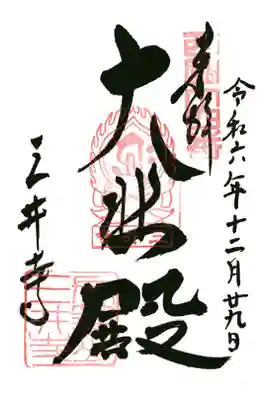 令和六年十二月廿九日
奉拝
大悲殿
三井寺